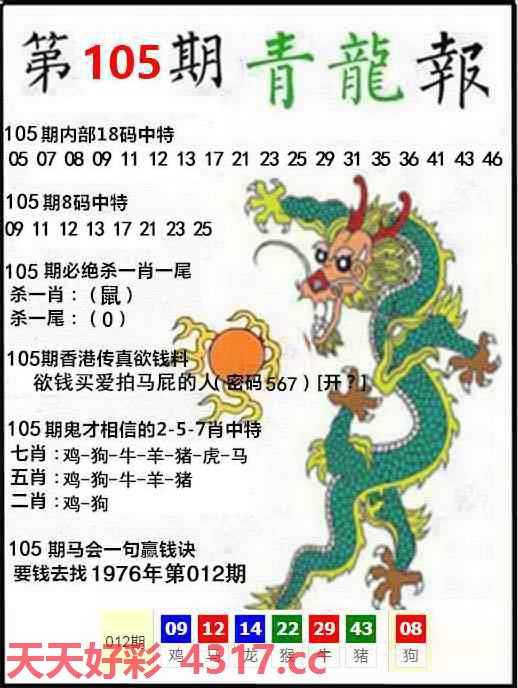 第105期青龍報
105期内部18码中特
05 07 08 09 11 12 13 17 21 23 25 29 31 35 36 41 43 46
105期8码中特
09 11 12 13 17 21 23 25
105期必绝杀一肖一尾
杀一肖：(鼠)
杀一尾：(0)
105期香港传真欲钱料
欲钱买爱拍马屁的人(密码567)[开?]
105期鬼才相信的2-5-7肖中特
七肖：鸡-狗-牛-羊-猪-虎-马
五肖：鸡-狗-牛-羊-猪
二肖：鸡-狗
105期马会一句赢钱诀
要钱去找1976年第012期
012期 09 12 14 22 29 43 08
鸡 马 龙 猴 牛 猪 狗
天天好彩 4317.cc